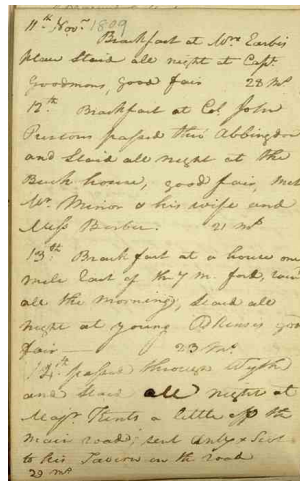 11th Novr. 1809
Breakfast at Mrs
place Staid all night at Capt.
Goodmans, good fair 28 Ms.
12th Breakfast at Col John
Prestons passed thro' Abbingdon
and Staid all night at the
Buck house, good fair, met
Mr. Minor & his wife and
Miss Barber. 21 Ms
13th Breakfast at a house one
mile East of the 7 m. ford, rain
all the morning, staid all
night at young good
fair — 23 Ms.
14th passed through Wyth
and Staid all night at
Majr. Kents a little off the
main road; sent &
to his Tavern on the road
29 Ms